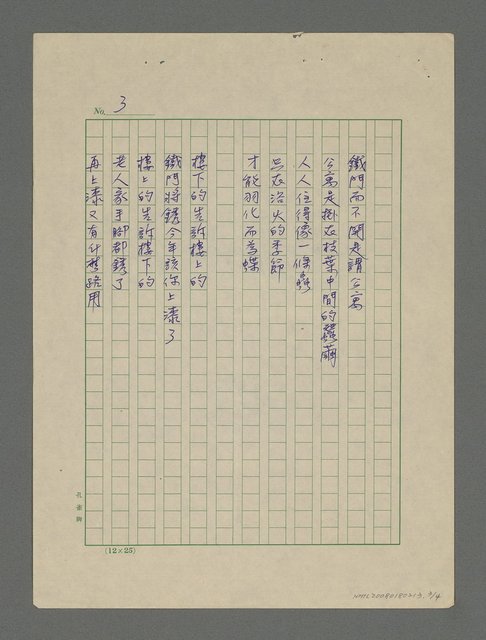 No. 3
鐵門而不開是謂公寓
公寓是掛在枝葉中間的繭
人人住得像一條蟲
只在浴火的季節
才能羽化而為蝶
樓下的告訴樓上的
鐵門將銹今年該你上漆了
樓上的告訴樓下的
老人家手腳都銹了
再上漆又有什麼路用
孔雀牌
(12×25)
NMTL20080180213. 3/4